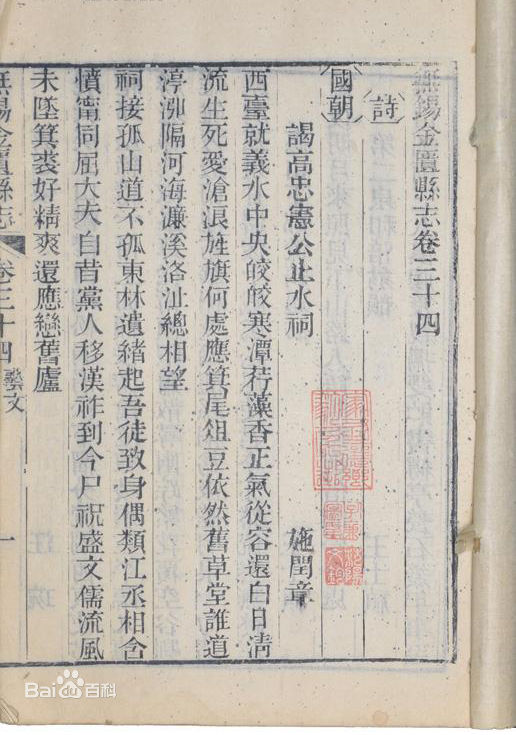 無錫金匱縣志卷三十四
詩
國朝
謁高忠憲公止水祠
施閏章
西臺就義水中央皎皎寒潭荇藻香正氣從容還白日清
流生死愛滄浪旌旗何處應箕尾俎豆依然舊草堂誰道
渟泖隔河海濂溪洛沚總相望
祠接孤山道不孤東林遺緒起吾徒致身偶類江丞相含
憤甯同屈大夫自昔黨人移漢祚到今尸祝盛文儒流風
未墜箕裘好精爽還應戀舊廬
無錫金匱縣志
卷三十四
藝文
一
Baidu百科